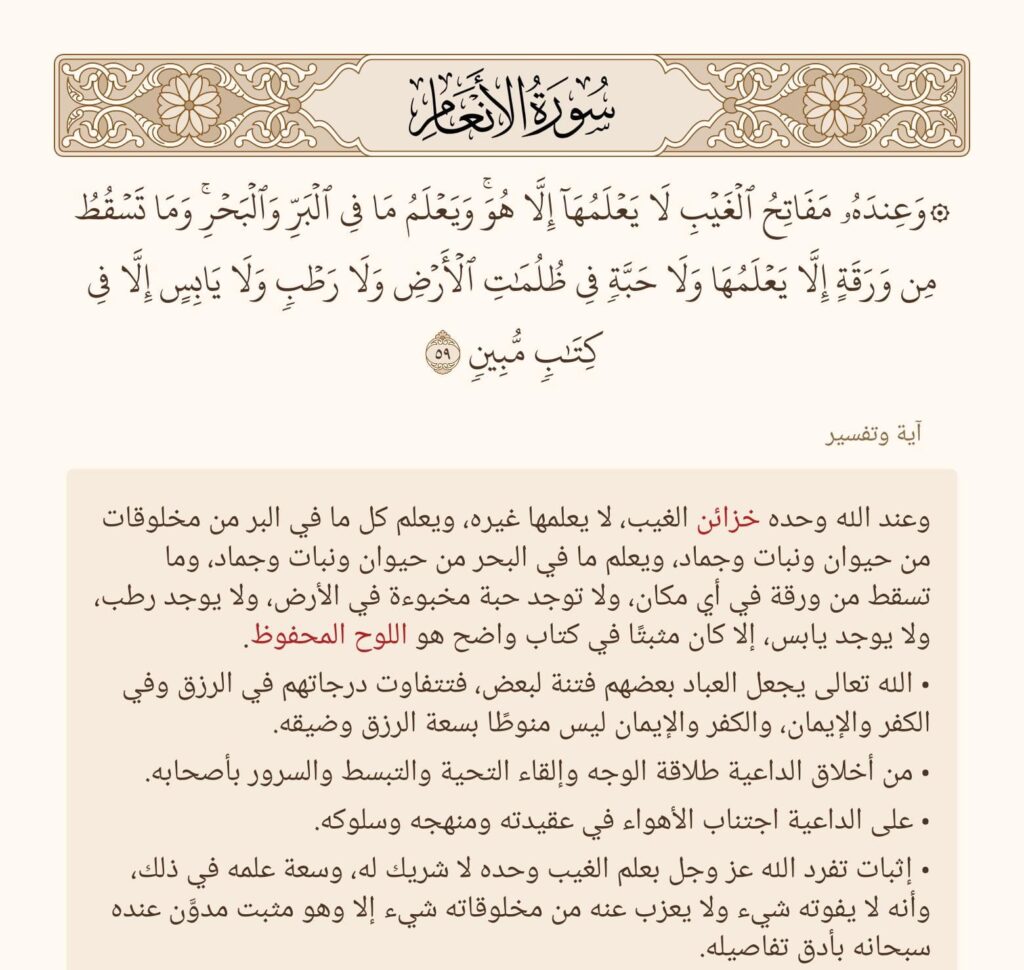 سُورَةُ الأَنْعَامِ
۞ وَعِندَهُۥ مَفَاتِحُ ٱلْغَيْبِ لَا يَعْلَمُهَآ إِلَّا هُوَۚ وَيَعْلَمُ مَا فِى ٱلْبَرِّ وَٱلْبَحْرِۚ وَمَا تَسْقُطُ
مِن وَرَقَةٍ إِلَّا يَعْلَمُهَا وَلَا حَبَّةٍۢ فِى ظُلُمَـٰتِ ٱلْأَرْضِ وَلَا رَطْبٍۢ وَلَا يَابِسٍ إِلَّا فِى
كِتَـٰبٍۢ مُّبِينٍۢ ٥٩
آية وتفسير
وعند الله وحده خزائن الغيب، لا يعلمها غيره، ويعلم كل ما في البر من مخلوقات
من حيوان ونبات وجماد، ويعلم ما في البحر من حيوان ونبات وجماد، وما
تسقط من ورقة في أي مكان، ولا توجد حبة مخبوءة في الأرض، ولا يوجد رطب،
ولا يوجد يابس، إلا كان مثبتًا في كتاب واضح هو اللوح المحفوظ.
• الله تعالى يجعل العباد بعضهم فتنة لبعض، فتتفاوت درجاتهم في الرزق وفي
الكفر والإيمان، والكفر والإيمان ليس منوطًا بسعة الرزق وضيقه.
• من أخلاق الداعية طلاقة الوجه وإلقاء التحية والتبسط والسرور بأصحابه.
• على الداعية اجتناب الأهواء في عقيدته ومنهجه وسلوكه.
• إثبات تفرد الله عز وجل بعلم الغيب وحده لا شريك له، وسعة علمه في ذلك،
وأنه لا يفوته شيء ولا يعزب عنه من مخلوقاته شيء إلا وهو مثبت مدوَّن عنده
سبحانه بأدق تفاصيله.